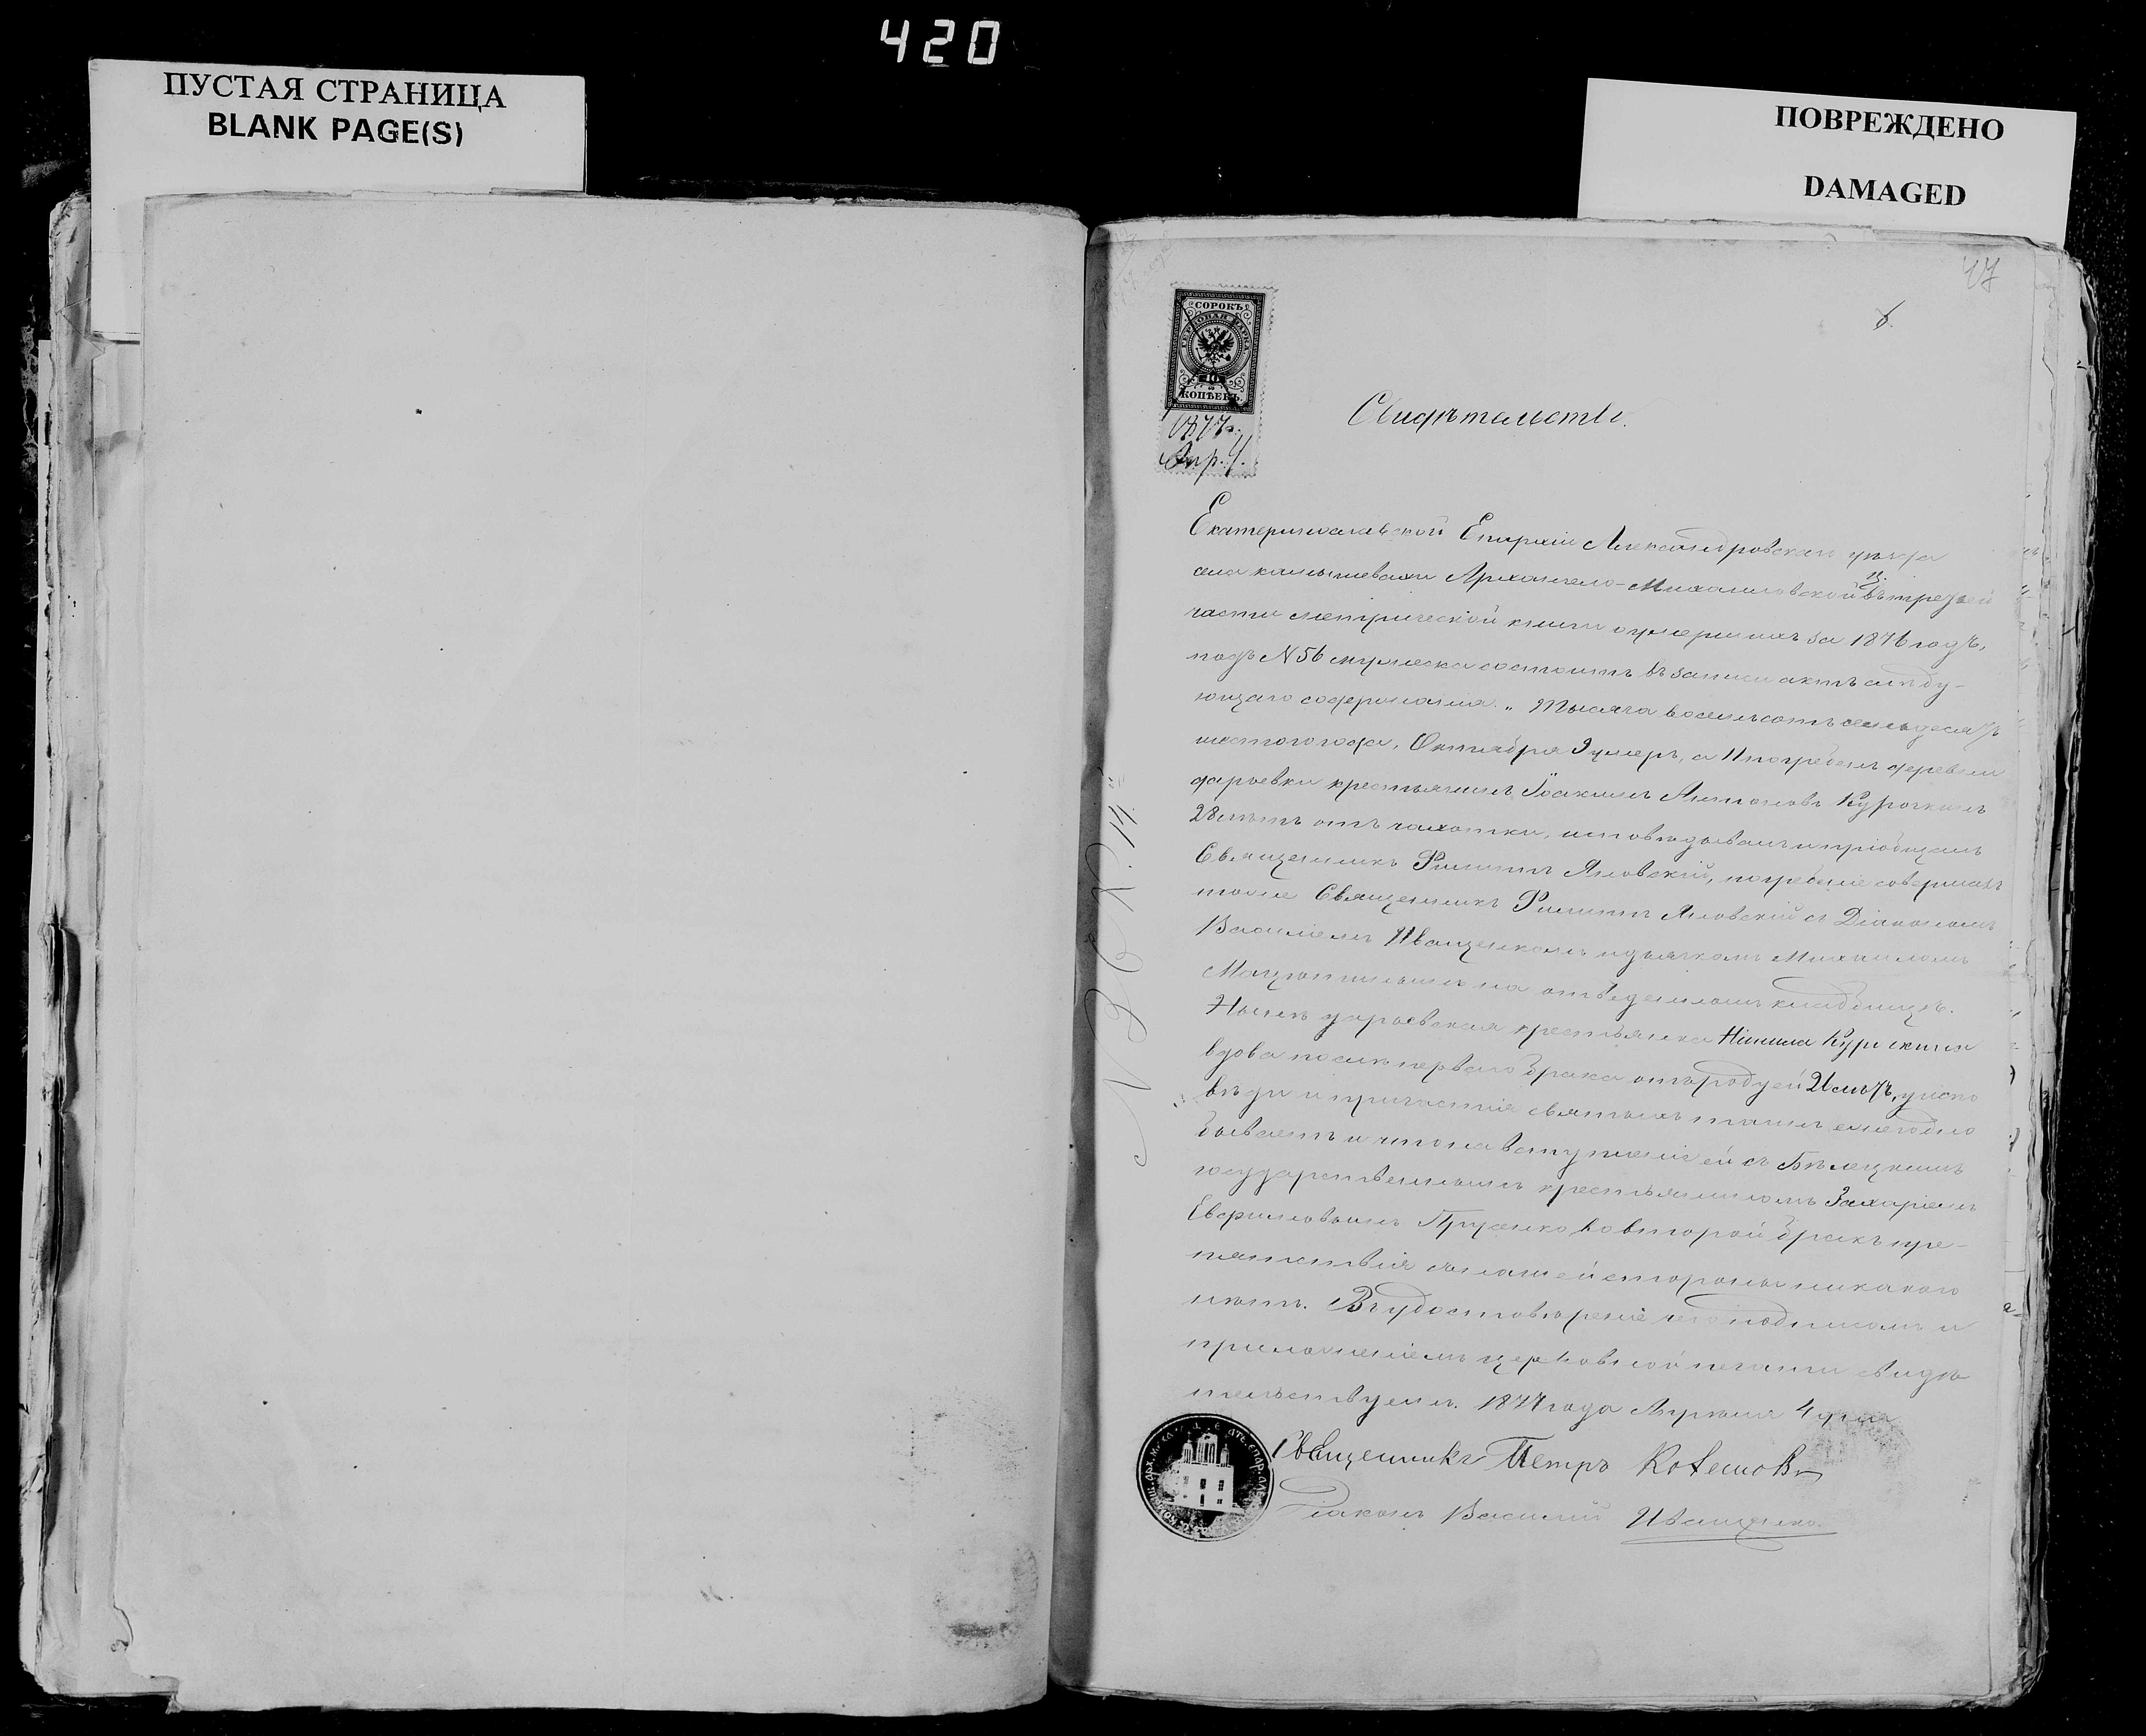 420
ПУСТАЯ СТРАНИЦА
BLANK PAGE(S)
ПОВРЕЖДЕНО
DAMAGED
47
СОРОКЪ
ГЕРБОВАЯ МАРКА
40
КОПѢЕКЪ.
1877 г.
Апр. 4.
Свидѣтельство.
Екатеринославской Епархіи Александровскаго уѣзда
села Камышевахи Архангело-Михайловской ц. въ третьей
части метрической книги о умершихъ за 1876 годъ,
подъ N 56 мужеска состоитъ въ записи актъ слѣду-
ющаго содержанія: „Тысяча восемьсотъ семьдесятъ
шестого года, Октября 9 умеръ, а 11 погребенъ деревни
Дарьевки крестьянинъ Іоакимъ Антоновъ Курочкинъ
28 лѣтъ отъ чахотки, исповѣдывалъ и пріобщалъ
Священникъ Филиппъ Яновскій, погребеніе совершалъ
тотъ же Священникъ Филиппъ Яновскій съ Діакономъ
Василіемъ Иващенкомъ и дьячкомъ Михаиломъ
на отведенномъ кладбищѣ.
Нынѣ Дарьевская крестьянка Ненила Курочкина
вдова послѣ перваго брака отъ роду ей 21 лѣтъ, у испо
вѣди и причастія святыхъ таинъ ежегодно
бываетъ и что на вступленіе ей съ Бѣлецкимъ
государственнымъ крестьяниномъ Захаріемъ
во второй бракъ пре-
пятствія съ нашей стороны никакого
нѣтъ. Въ удостовѣреніе чего подписомъ и
приложеніемъ церковной печати свидѣ
тельствуемъ. 1877 года Апрѣля 4 дня
Священникъ Петръ
Діаконъ Василій Иващенко